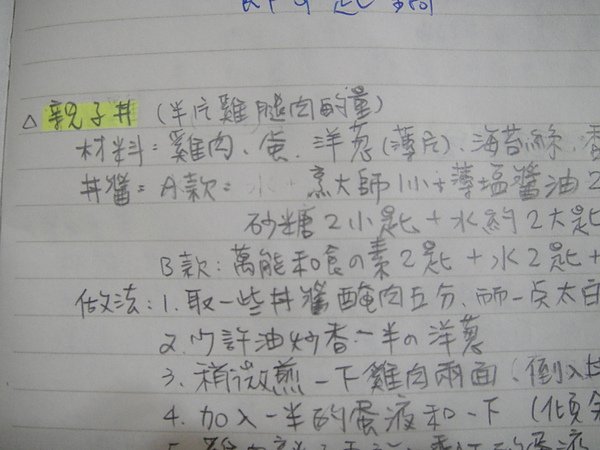 △ 親子丼 (半片雞腿肉的量)
材料：雞肉、蛋、洋蔥(薄片)、海苔絲、
丼醬：A款：水+烹大師1小+薄塩醬油2
砂糖2小匙+水約2大匙
B款：萬能和食の素2匙+水2匙+
做法：1.取一些丼醬醃肉五分、而一点太白
2.少許油炒香一半の洋蔥
3.稍微煎一下雞肉兩面、倒入丼
4.加入一半的蛋液和一下(傾
5.